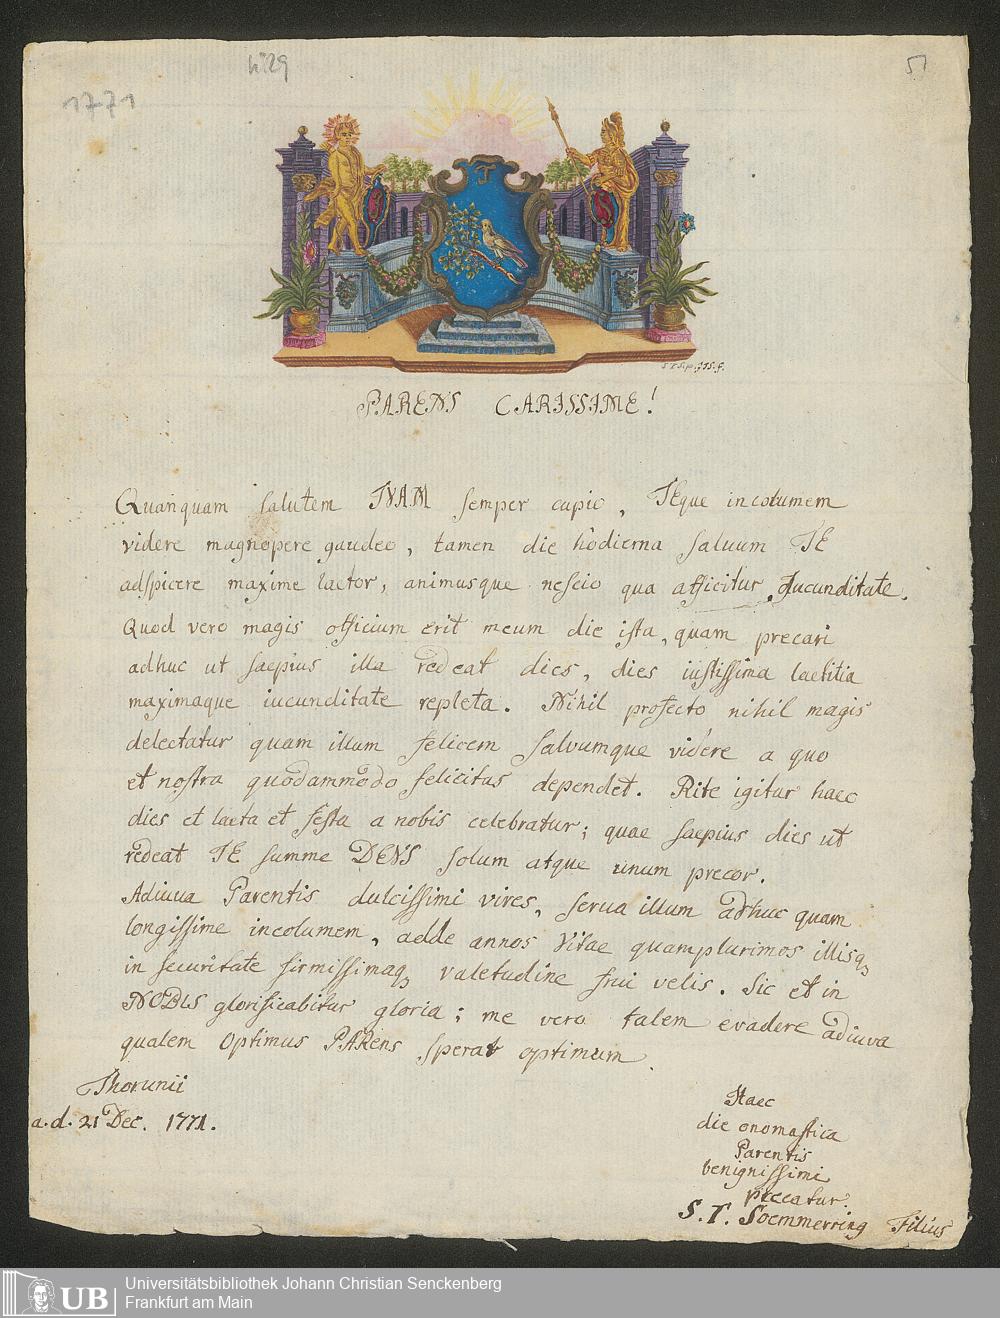 N° 29
51
1771
PARENS CARISSIME!
Quanquam salutem TVAM semper cupio, TEque incolumem
videre magnopere gaudeo, tamen die hodierna saluum TE
adspicere maxime laetor, animusque nescio qua afficitur Jucunditate.
Quod vero magis officium erit meum die ista, quam precari
adhuc ut saepius illa redeat dies, dies iustissima laetitia
maximaque iucunditate repleta. Nihil profecto nihil magis
delectatur quam illum felicem salvumque videre a quo
et nostra quodammodo felicitas dependet. Rite igitur haec
dies et laeta et festa a nobis celebratur; quae saepius dies ut
redeat TE summe DEVS solum atque unum precor.
Adiuua Parentis dulcissimi vires, serua illum adhuc quam
longissime incolumem, adde annos Vitae quamplurimos illisq,
in securitate firmissimaq, valetudine frui velis. Sic et in
NOBIS glorificabitur gloria; me vero talem evadere adiuva
qualem Optimus PARens sperat optimum.
Thorunii
a.d. 21 Dec. 1771.
Haec
die onomastica
Parentis
benignissimi
precatur.
S.T. Soemmerring Filius
UB
Universitätsbibliothek Johann Christian Senckenberg
Frankfurt am Main